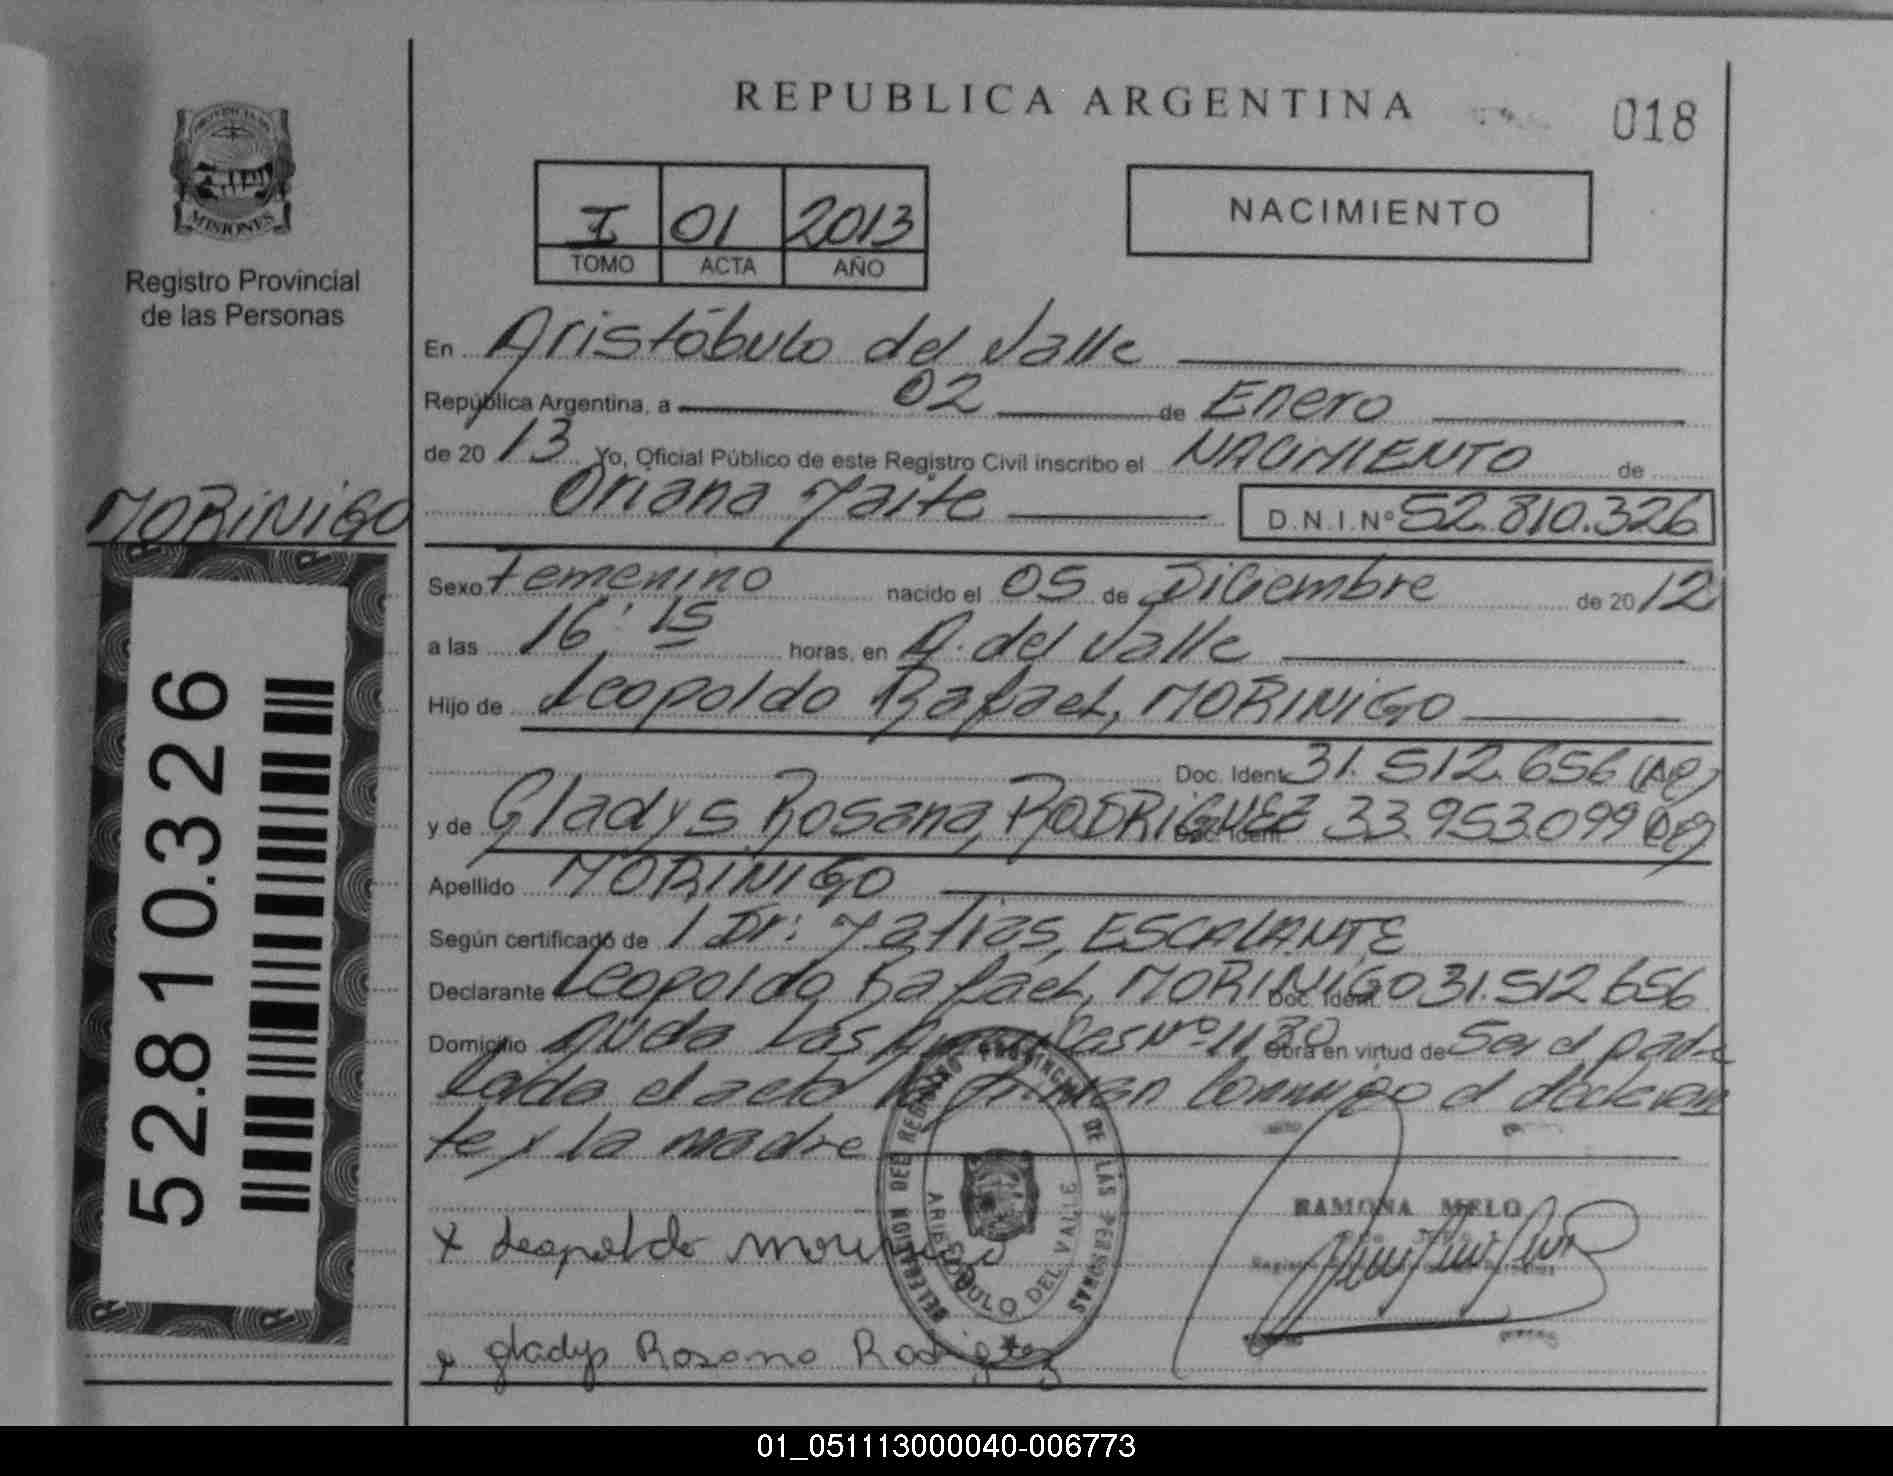 REPUBLICA ARGENTINA
018
PROVINCIA DE
MISIONES
Registro Provincial
de las Personas
I 01 2013
TOMO ACTA AÑO
NACIMIENTO
En Aristóbulo del Valle
República Argentina, a 02 de Enero
de 2013 Yo, Oficial Público de este Registro Civil inscribo el NACIMIENTO de
MORINIGO
Oriana Maite D.N.I.Nº 52.810.326
Sexo femenino nacido el 05 de Diciembre de 2012
a las 16:15 horas, en A. del Valle
Hijo de Leopoldo Rafael, MORINIGO
Doc. Ident. 31.512.656
y de Gladys Rosana, RODRIGUEZ Doc. Ident. 33.953.099
Apellido MORINIGO
Según certificado de Dr: Matias, ESCALANTE
Declarante Leopoldo Rafael, MORINIGO Doc. Ident. 31.512.656
Domicilio Avda Las Nº 1130 Obra en virtud de Ser el padre
Leída el acta la firman conmigo el declaran
te y la madre
52.810.326
DELEGACION DEL REGISTRO PROVINCIAL DE LAS PERSONAS
ARISTOBULO DEL VALLE
RAMONA MELO
x Leopoldo Morinigo
x gladys Rosana Rodriguez
01_051113000040-006773